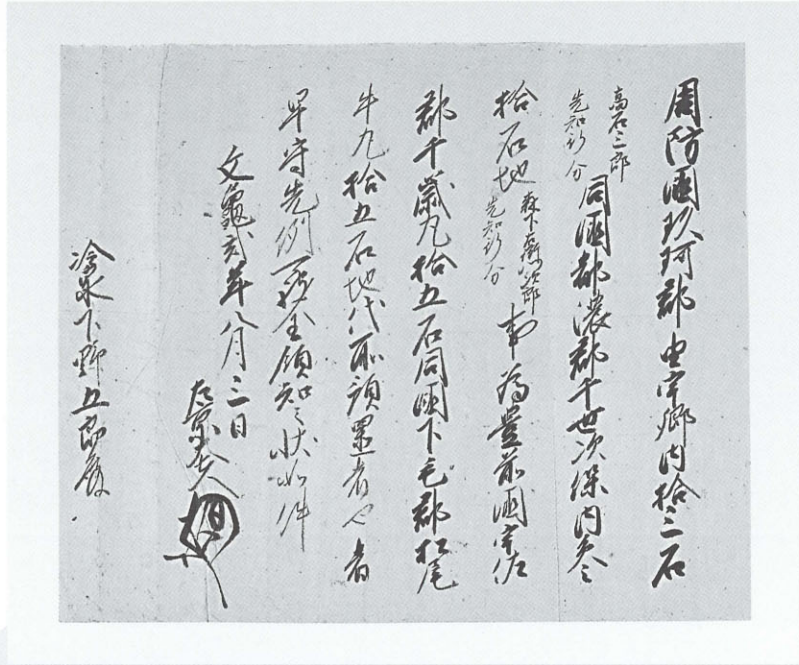 周防国玖珂郡由宇郷内拾三石
高石三郎
先知行分
同国都濃郡千世次保内参
拾石地
森下
先知行分
事為豊前国宇佐
郡千歳九拾五石同国下毛郡松尾
牛九拾五石地代所領置者也者
早守先例可全領知之状如件
文亀弐年八月三日
左京大夫
冷泉下野五郎殿